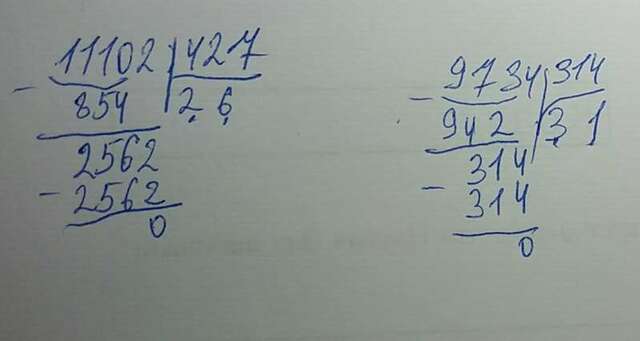 11102 427
- 854 26
2562
- 2562
0
9734 314
- 942 31
314
- 314
0